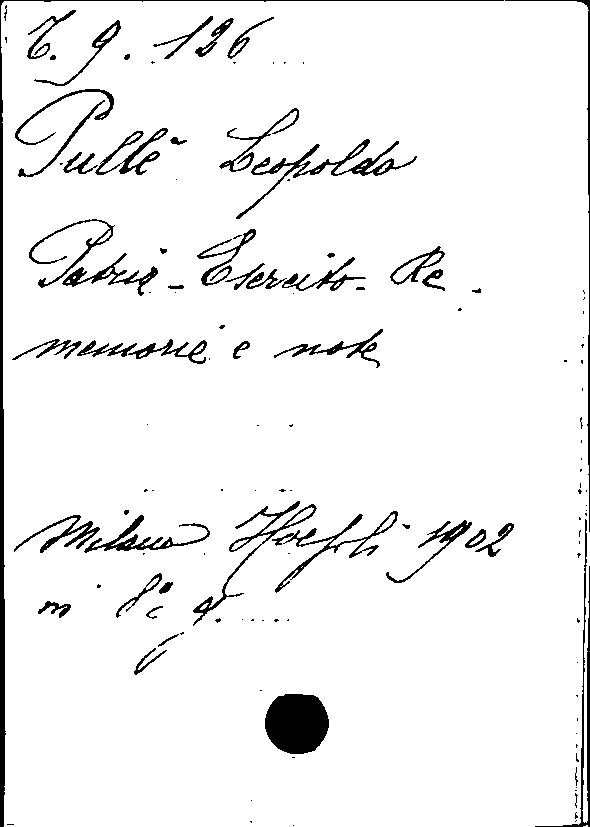 T. 9. 126
Pullè Leopoldo
Patria - Esercito - Re -
memorie e note
Milano Hoepli 1902
in 8° g.